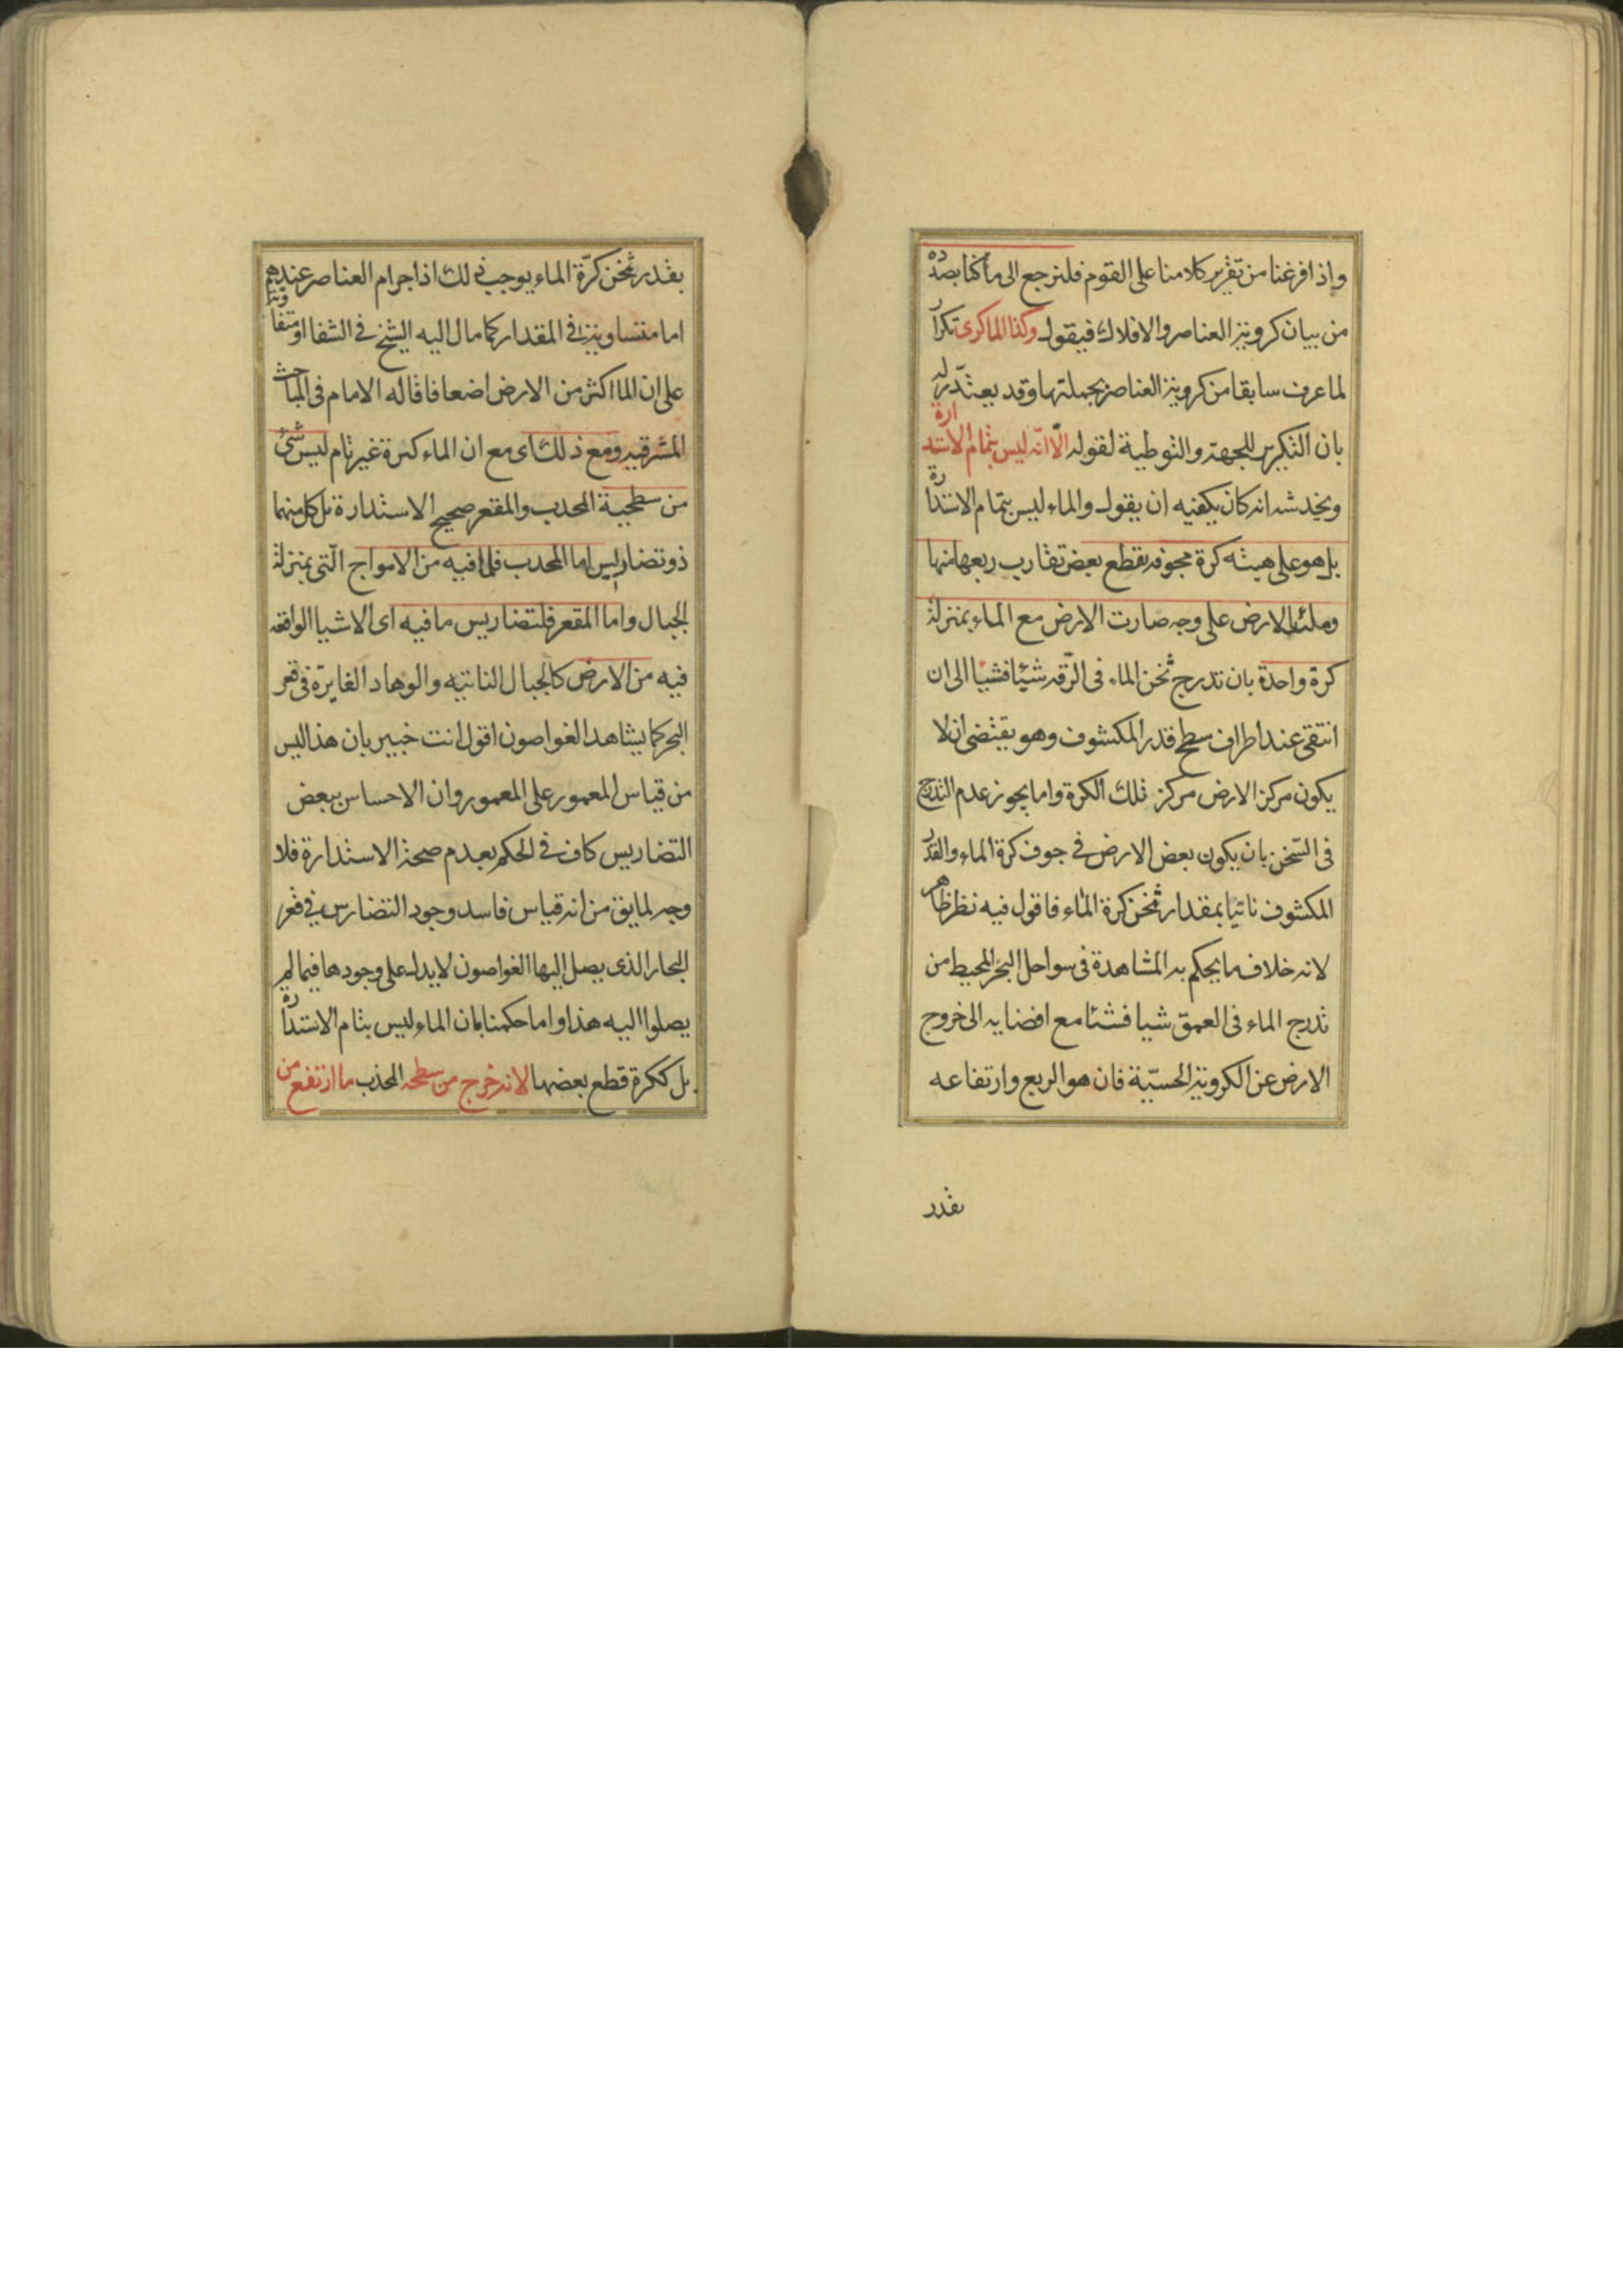 واذا فرغنا من تقرير كلامنا على القوم فلنرجع الى ما كنا بصدده
من بيان كروية العناصر والافلاك فيقول وكذا الماء كرى تكرار
لما عرف سابقا من كروية العناصر بجملتها وقد يعتذر له
بان التكرير للجهة والتوطية لقوله الا انه ليس بتمام الاستدارة
ويخدشه انه كان يكفيه ان يقول والماء ليس بتمام الاستدارة
بل هو على هيئة كرة مجوفة يقطع بعض تقارب ربعها منها
وملئت الارض على وجه صارت الارض مع الماء بمنزلة
كرة واحدة بان تدرج ثخن الماء فى الرقة شيئا فشيئا الى ان
انتقى عند اطراف سطح قدر المكشوف وهو يقتضى ان لا
يكون مركز الارض مركز تلك الكرة واما يجوز عدم التدرج
فى الثخن بان يكون بعض الارض فى جوف كرة الماء والقدر
المكشوف ناتيا بمقدار ثخن كرة الماء فاقول فيه نظر ظاهر
لانه خلاف ما يحكم به المشاهدة فى سواحل البحر المحيط من
تدرج الماء فى العمق شيا فشئا مع افضايه الى خروج
الارض عن الكروية الحسية فان هو الربع وارتفاعه
بقدر
بقدر ثخن كرة الماء يوجب ذلك اذ اجرام العناصر عندهم
اما متساوية فى المقدار كما مال اليه الشيخ فى الشفا او متفاوتة
على ان الما اكثر من الارض اضعافا قاله الامام فى المباحث
المشرقيه ومع ذلك اى مع ان الماء كرة غير تام ليس شئ
من سطحية المحدب والمقعر صحيح الاستدارة بل كل منهما
ذو تضاريس اما المحدب فلما فيه من الامواج التى بمنزلة
الجبال واما المقعر فلتضاريس ما فيه اى الاشيا الواقعه
فيه من الارض كالجبال الناتيه والوهاد الغايرة فى قعر
البحر كما يشاهد الغواصون اقول انت خبير بان هذا ليس
من قياس المعمور على المعمور وان الاحساس ببعض
التضاريس كاف فى الحكم بعدم صحة الاستدارة فلا
وجه لما يق من انه قياس فاسد وجود التضارس فى قعر
البحار الذى يصل اليها الغواصون لا يدل على وجودها فيما لم
يصلوا اليه هذا واما حكمنا بان الماء ليس بتام الاستدارة
بل ككرة قطع بعضها لانه خرج من سطحه المحذب ما ارتفع من